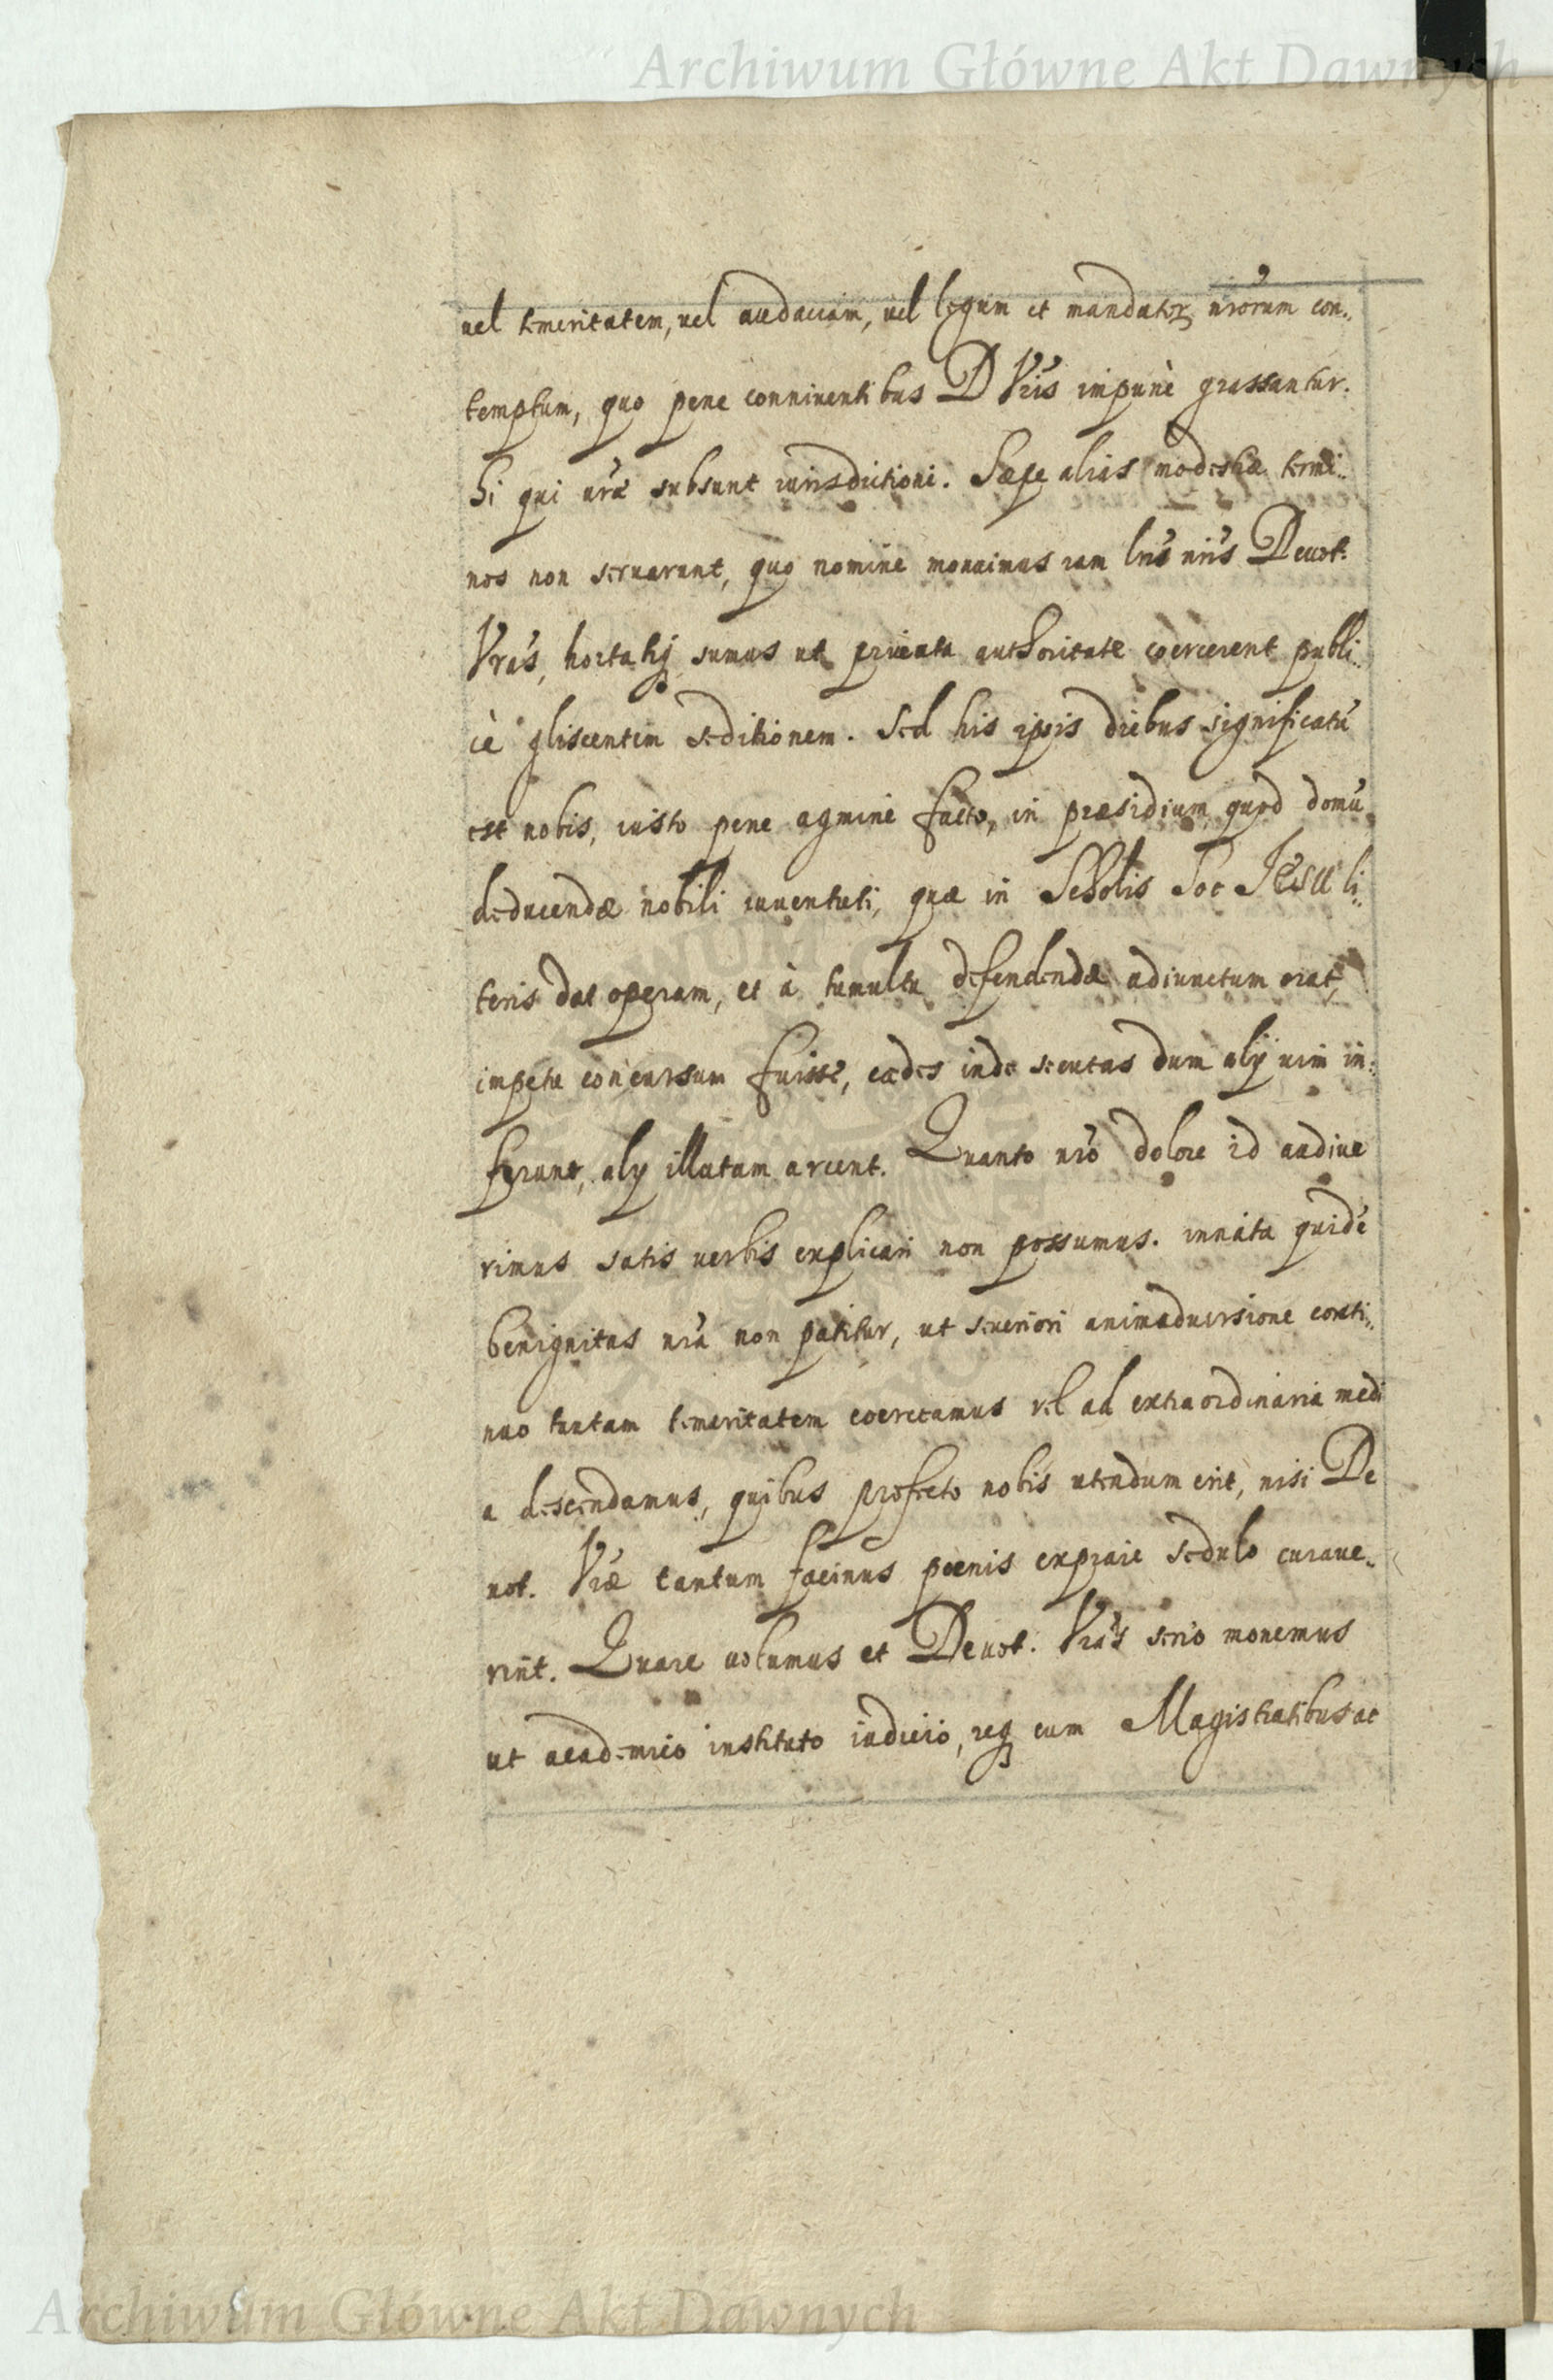 Archiwum Główne Akt Dawnych
uel temeritatem, uel audaciam, uel legum et mandatoꝝ nr̃orum con..
temptum, quo pene conniuentibus D Vr̃is impunè grassantur.
hi qui ur̃æ subsunt iurisdictioni. Sæpe aliàs modestiæ termi..
nos non seruarunt, quo nomine monuimus iam lr̃is nr̃is Deuot:
Vrãs, hortatiq; sumus ut priuata authoritate coercerent publi..
cè gliscentem seditionem. Sed his ipsis diebus significatũ
est nobis, iusto pene agmine facto, in præsidium quod domũ
deducendæ nobili iuuentuti, quæ in Scholis Soc Iesu li..
teris dat operam, et à tumultu defendendæ adiunctum erat,
impetu concursum fuisse, cædes inde secutas dum alij uim in..
ferunt, alij illatam arcent. Quanto nr̃o dolore id audiue
rimus satis uerbis explicari non possumus. innata quidẽ
benignitas nr̃a non patitur, ut seueriori animaduersione conti..
nuo tantam temeritatem coerceamus vel ad extraordinaria medi
a descendamus, quibus profecto nobis utendum erit, nisi De
uot. Vr̃æ tantum facinus poenis expiare sedulo curaue..
rint. Quare uolumus et Deuot. Vrãs serio monemus
ut academico instituto iudicio, req; cum Magistratibus ac
Archiwum Główne Akt Dawnych